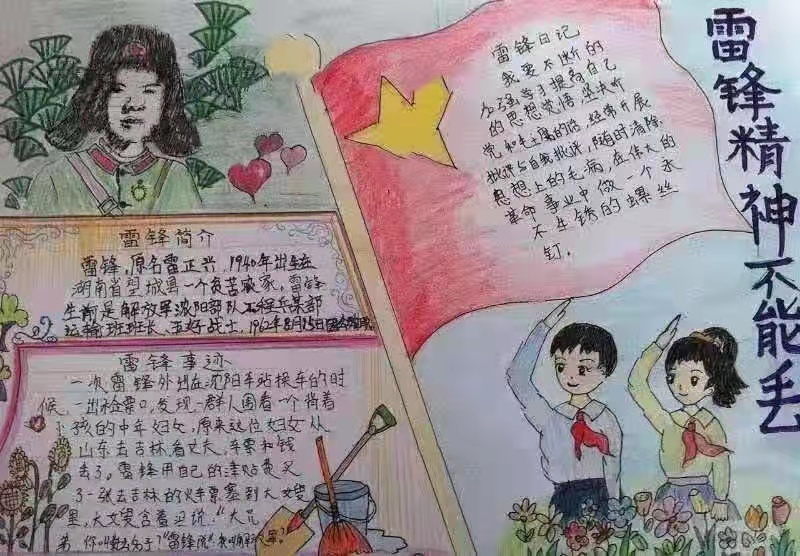 雷锋精神不能丢
雷锋日记
我要不断的
加强学习提高自己
的思想觉悟,坚决听
党和毛主席的话,经常开展
批评与自我批评,随时清除
思想上的毛病,在伟大的
革命事业中做一个永
不生锈的螺丝
钉。
雷锋简介
雷锋,原名雷正兴,1940年出生在
湖南省望城县一个贫苦农家,雷锋
生前是解放军沈阳部队工程兵某部
运输班班长、五好战士,1962年8月15日因公
雷锋事迹
一次雷锋外出在沈阳车站换车的时
候,一出检票口,发现一群人围着一个背着
小孩的中年妇女,原来这位妇女从
山东去吉林看丈夫,车票和钱
丢了。雷锋用自己的津贴费买
了一张去吉林的火车票塞到大嫂
里,大嫂含着泪说:"大兄
弟,你叫什么名字?"雷锋说: